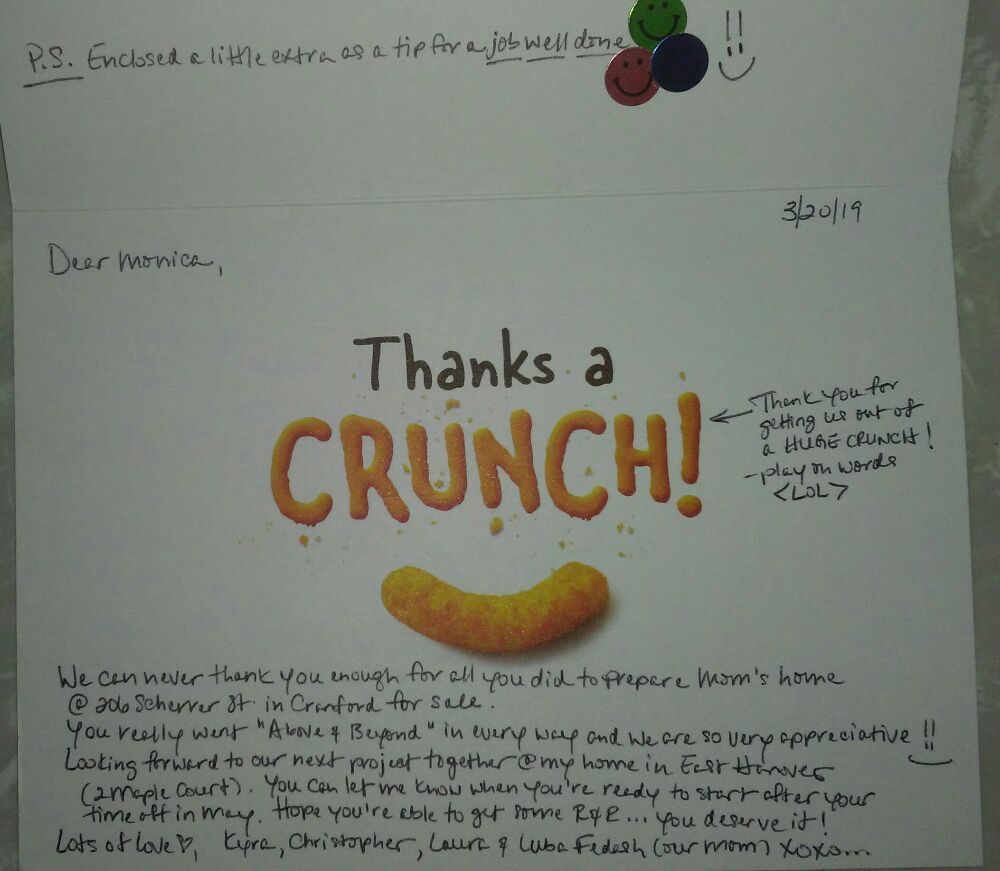 P.S. Enclosed a little extra as a tip for a job well done !!
3/20/19
Dear Monica,
Thanks a
CRUNCH!
Thank you for
getting us out of
a HUGE CRUNCH!
- play on words
<LOL>
We can never thank you enough for all you did to prepare Mom's home
@ 206 Scherrer St. in Cranford for sale.
You really went "Above & Beyond" in every way and we are so very appreciative !!
Looking forward to our next project together @ my home in East Hanover
(2 Maple Court). You can let me know when you're ready to start after your
time off in May. Hope you're able to get some R&R... you deserve it!
Lots of Love ♡, Kyra, Christopher, Laura & Luba Fedash (our mom) xoxo...